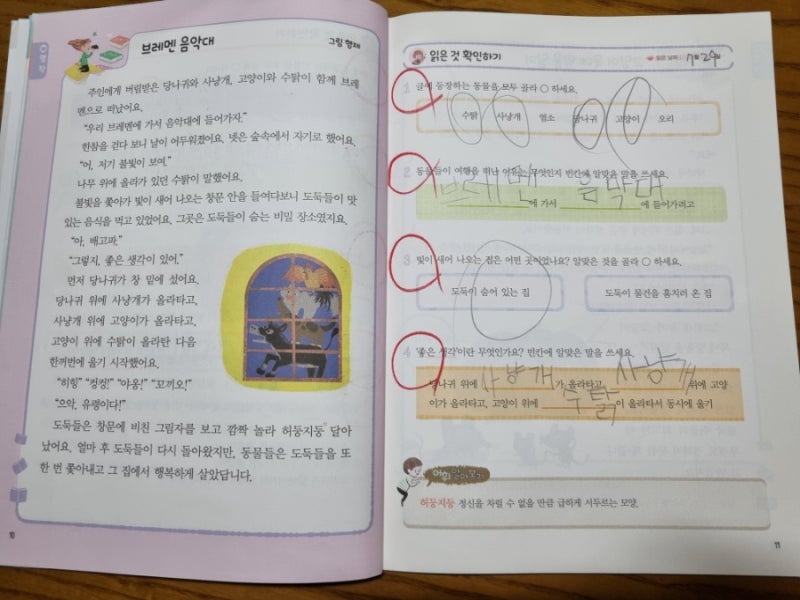 브레멘 음악대
그림 형제
주인에게 버림받은 당나귀와 사냥개, 고양이와 수탉이 함께 브레
멘으로 떠났어요.
“우리 브레멘에 가서 음악대에 들어가자.”
한참을 걷다 보니 날이 어두워졌어요. 넷은 숲속에서 자기로 했어요.
“어, 저기 불빛이 보여.”
나무 위에 올라가 있던 수탉이 말했어요.
불빛을 쫓아가 빛이 새어 나오는 창문 안을 들여다보니 도둑들이 맛
있는 음식을 먹고 있었어요. 그곳은 도둑들이 숨는 비밀 장소였지요.
“아, 배고파.”
“그렇지, 좋은 생각이 있어.”
먼저 당나귀가 창 밑에 섰어요.
당나귀 위에 사냥개가 올라타고,
사냥개 위에 고양이가 올라타고,
고양이 위에 수탉이 올라탄 다음
한꺼번에 울기 시작했어요.
“히힝” “컹컹!” “야옹!” “꼬끼오!”
“으악, 유령이다!”
도둑들은 창문에 비친 그림자를 보고 깜짝 놀라 허둥지둥 달아
났어요. 얼마 후 도둑들이 다시 돌아왔지만, 동물들은 도둑들을 또
한 번 쫓아내고 그 집에서 행복하게 살았답니다.
10
읽은 것 확인하기
읽은 날짜 7월 24일
1 글에 등장하는 동물을 모두 골라 ○ 하세요.
수탉 사냥개 염소 당나귀 고양이 오리
2 동물들이 여행을 떠난 이유는 무엇인지 빈칸에 알맞은 말을 쓰세요.
브레멘 에 가서 음악대 에 들어가려고
3 빛이 새어 나오는 집은 어떤 곳이었나요? 알맞은 것을 골라 ○ 하세요.
도둑이 숨어 있는 집 도둑이 물건을 훔치러 온 집
4 ‘좋은 생각’이란 무엇인가요? 빈칸에 알맞은 말을 쓰세요.
당나귀 위에 사냥개 가 올라타고, 사냥개 위에 고양
이가 올라타고, 고양이 위에 수탉 이 올라타서 동시에 울기
허둥지둥 정신을 차릴 수 없을 만큼 급하게 서두르는 모양.
11